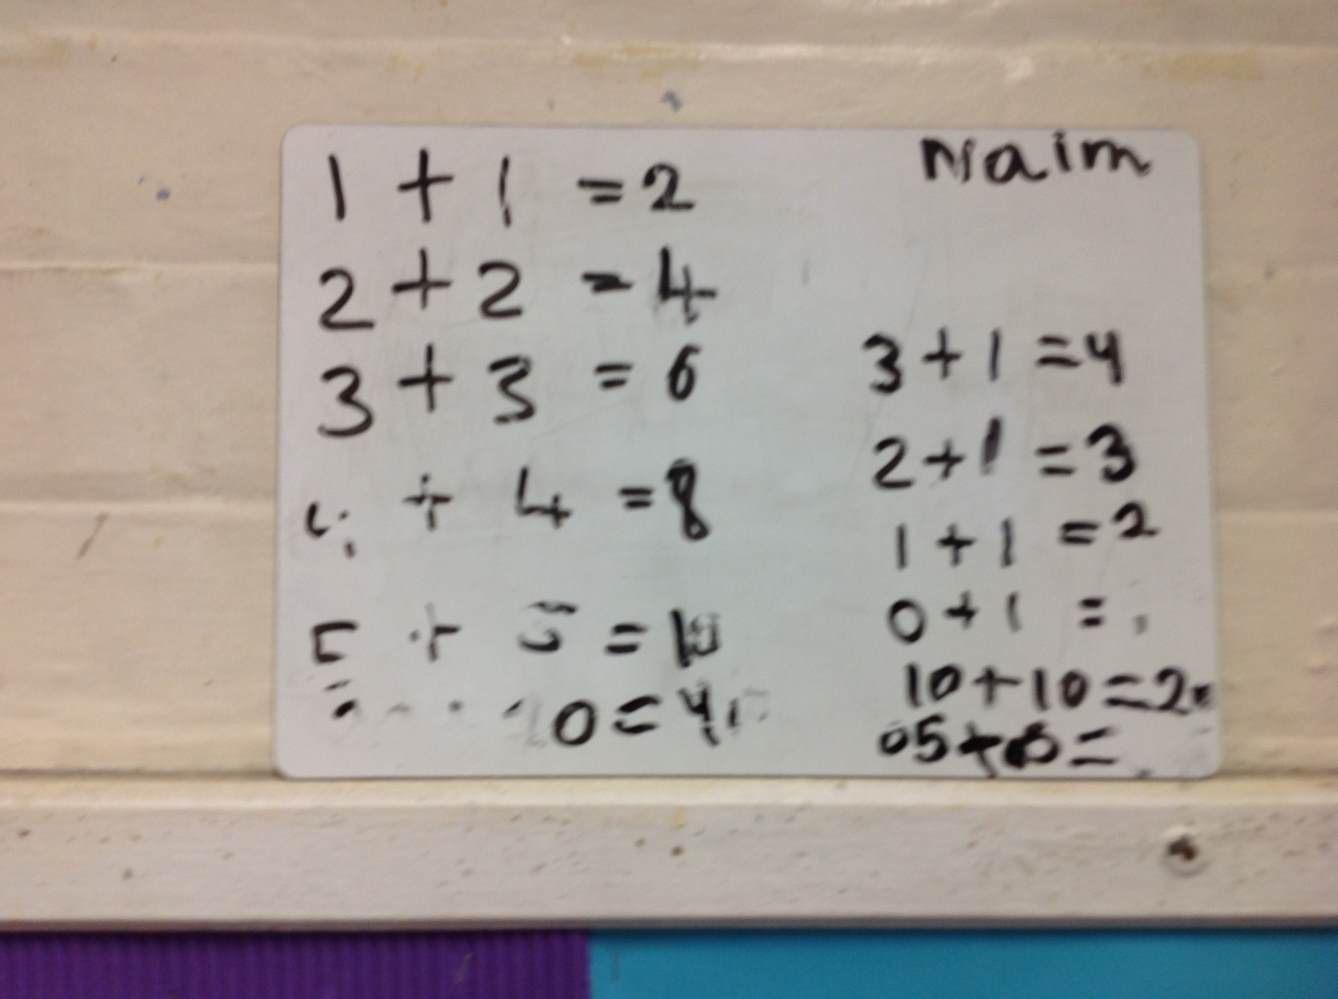 Naim
1 + 1 = 2
2 + 2 = 4
3 + 3 = 6
4 + 4 = 8
5 + 5 = 10
0 = 4
3 + 1 = 4
2 + 1 = 3
1 + 1 = 2
0 + 1 =
10 + 10 = 20
05 + =